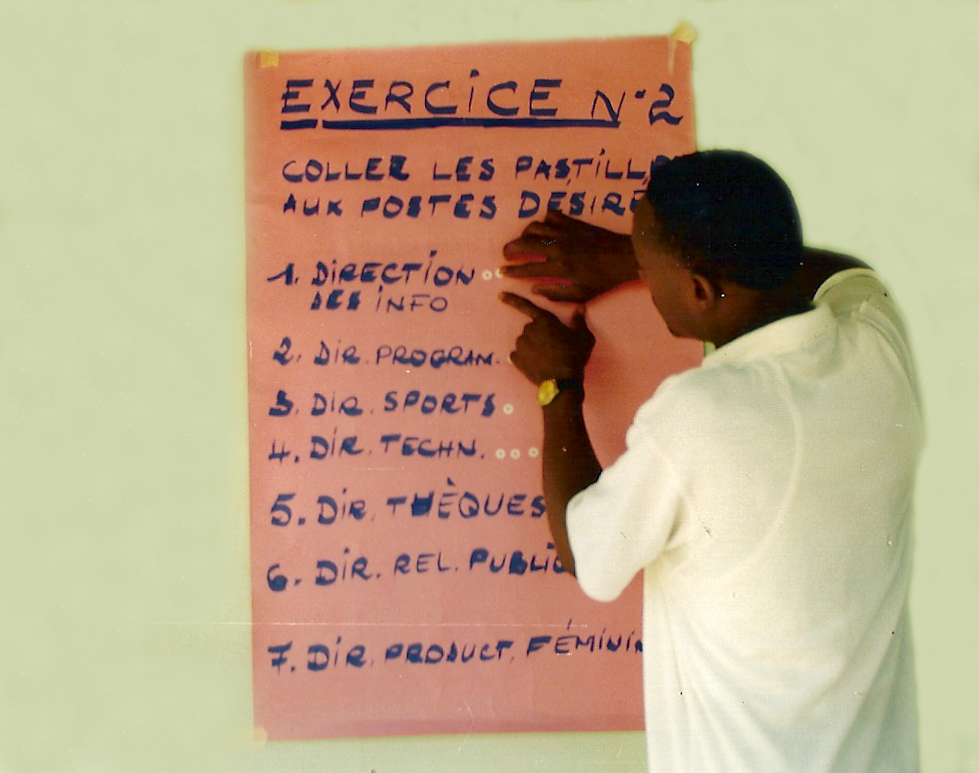 EXERCICE N°2
COLLER LES PASTILL
AUX POSTES DÉSIRÉ
1. DIRECTION
DES INFO
2. DIR. PROGRAM.
3. DIR. SPORTS
4. DIR. TECHN.
5. DIR. THÈQUES
6. DIR. REL. PUBLIC
7. DIR. PRODUCT. FÉMININ